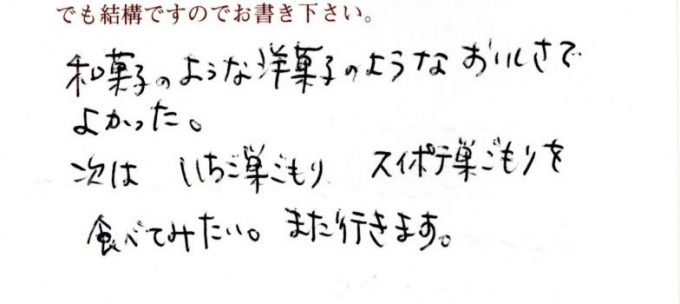 でも結構ですのでお書き下さい。
和菓子のような洋菓子のようなおいしさで
よかった。
次は いちご巣ごもり スイポテ巣ごもりを
食べてみたい。また行きます。